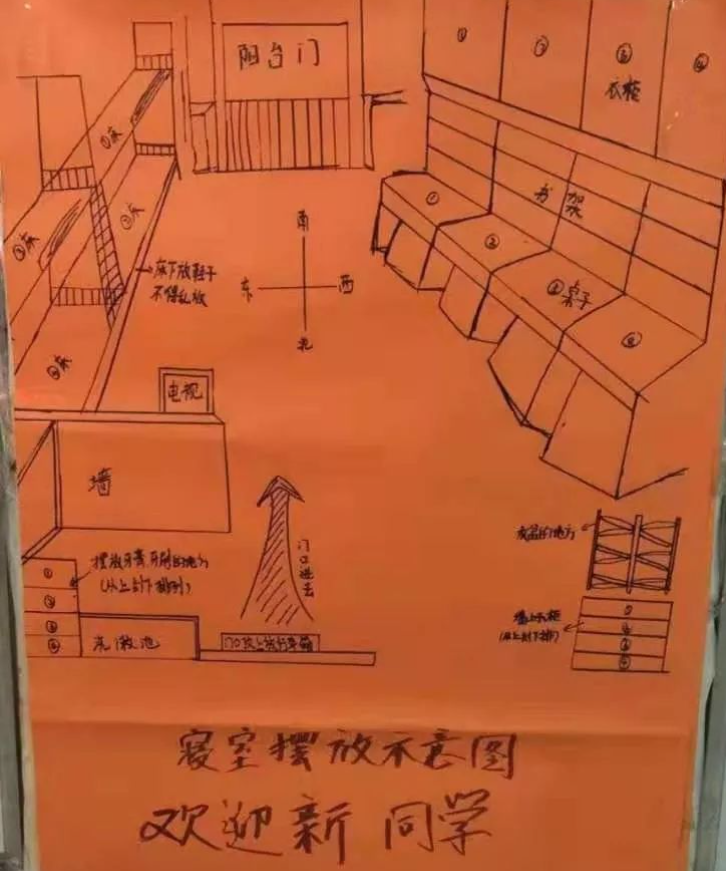 阳台门
① ② ③ ④
衣柜
①床
②床
③床
④床
书架
① ② ③ ④
桌子
南
东 西
北
床下放鞋子
不得乱放
电视
墙
门口进去
摆放牙膏牙刷的地方
(从上到下排列)
①
②
③
④
洗漱池
门口顶上放行李箱
的地方
墙上衣柜
(从上到下排)
①
②
③
④
寝室摆放示意图
欢迎新同学